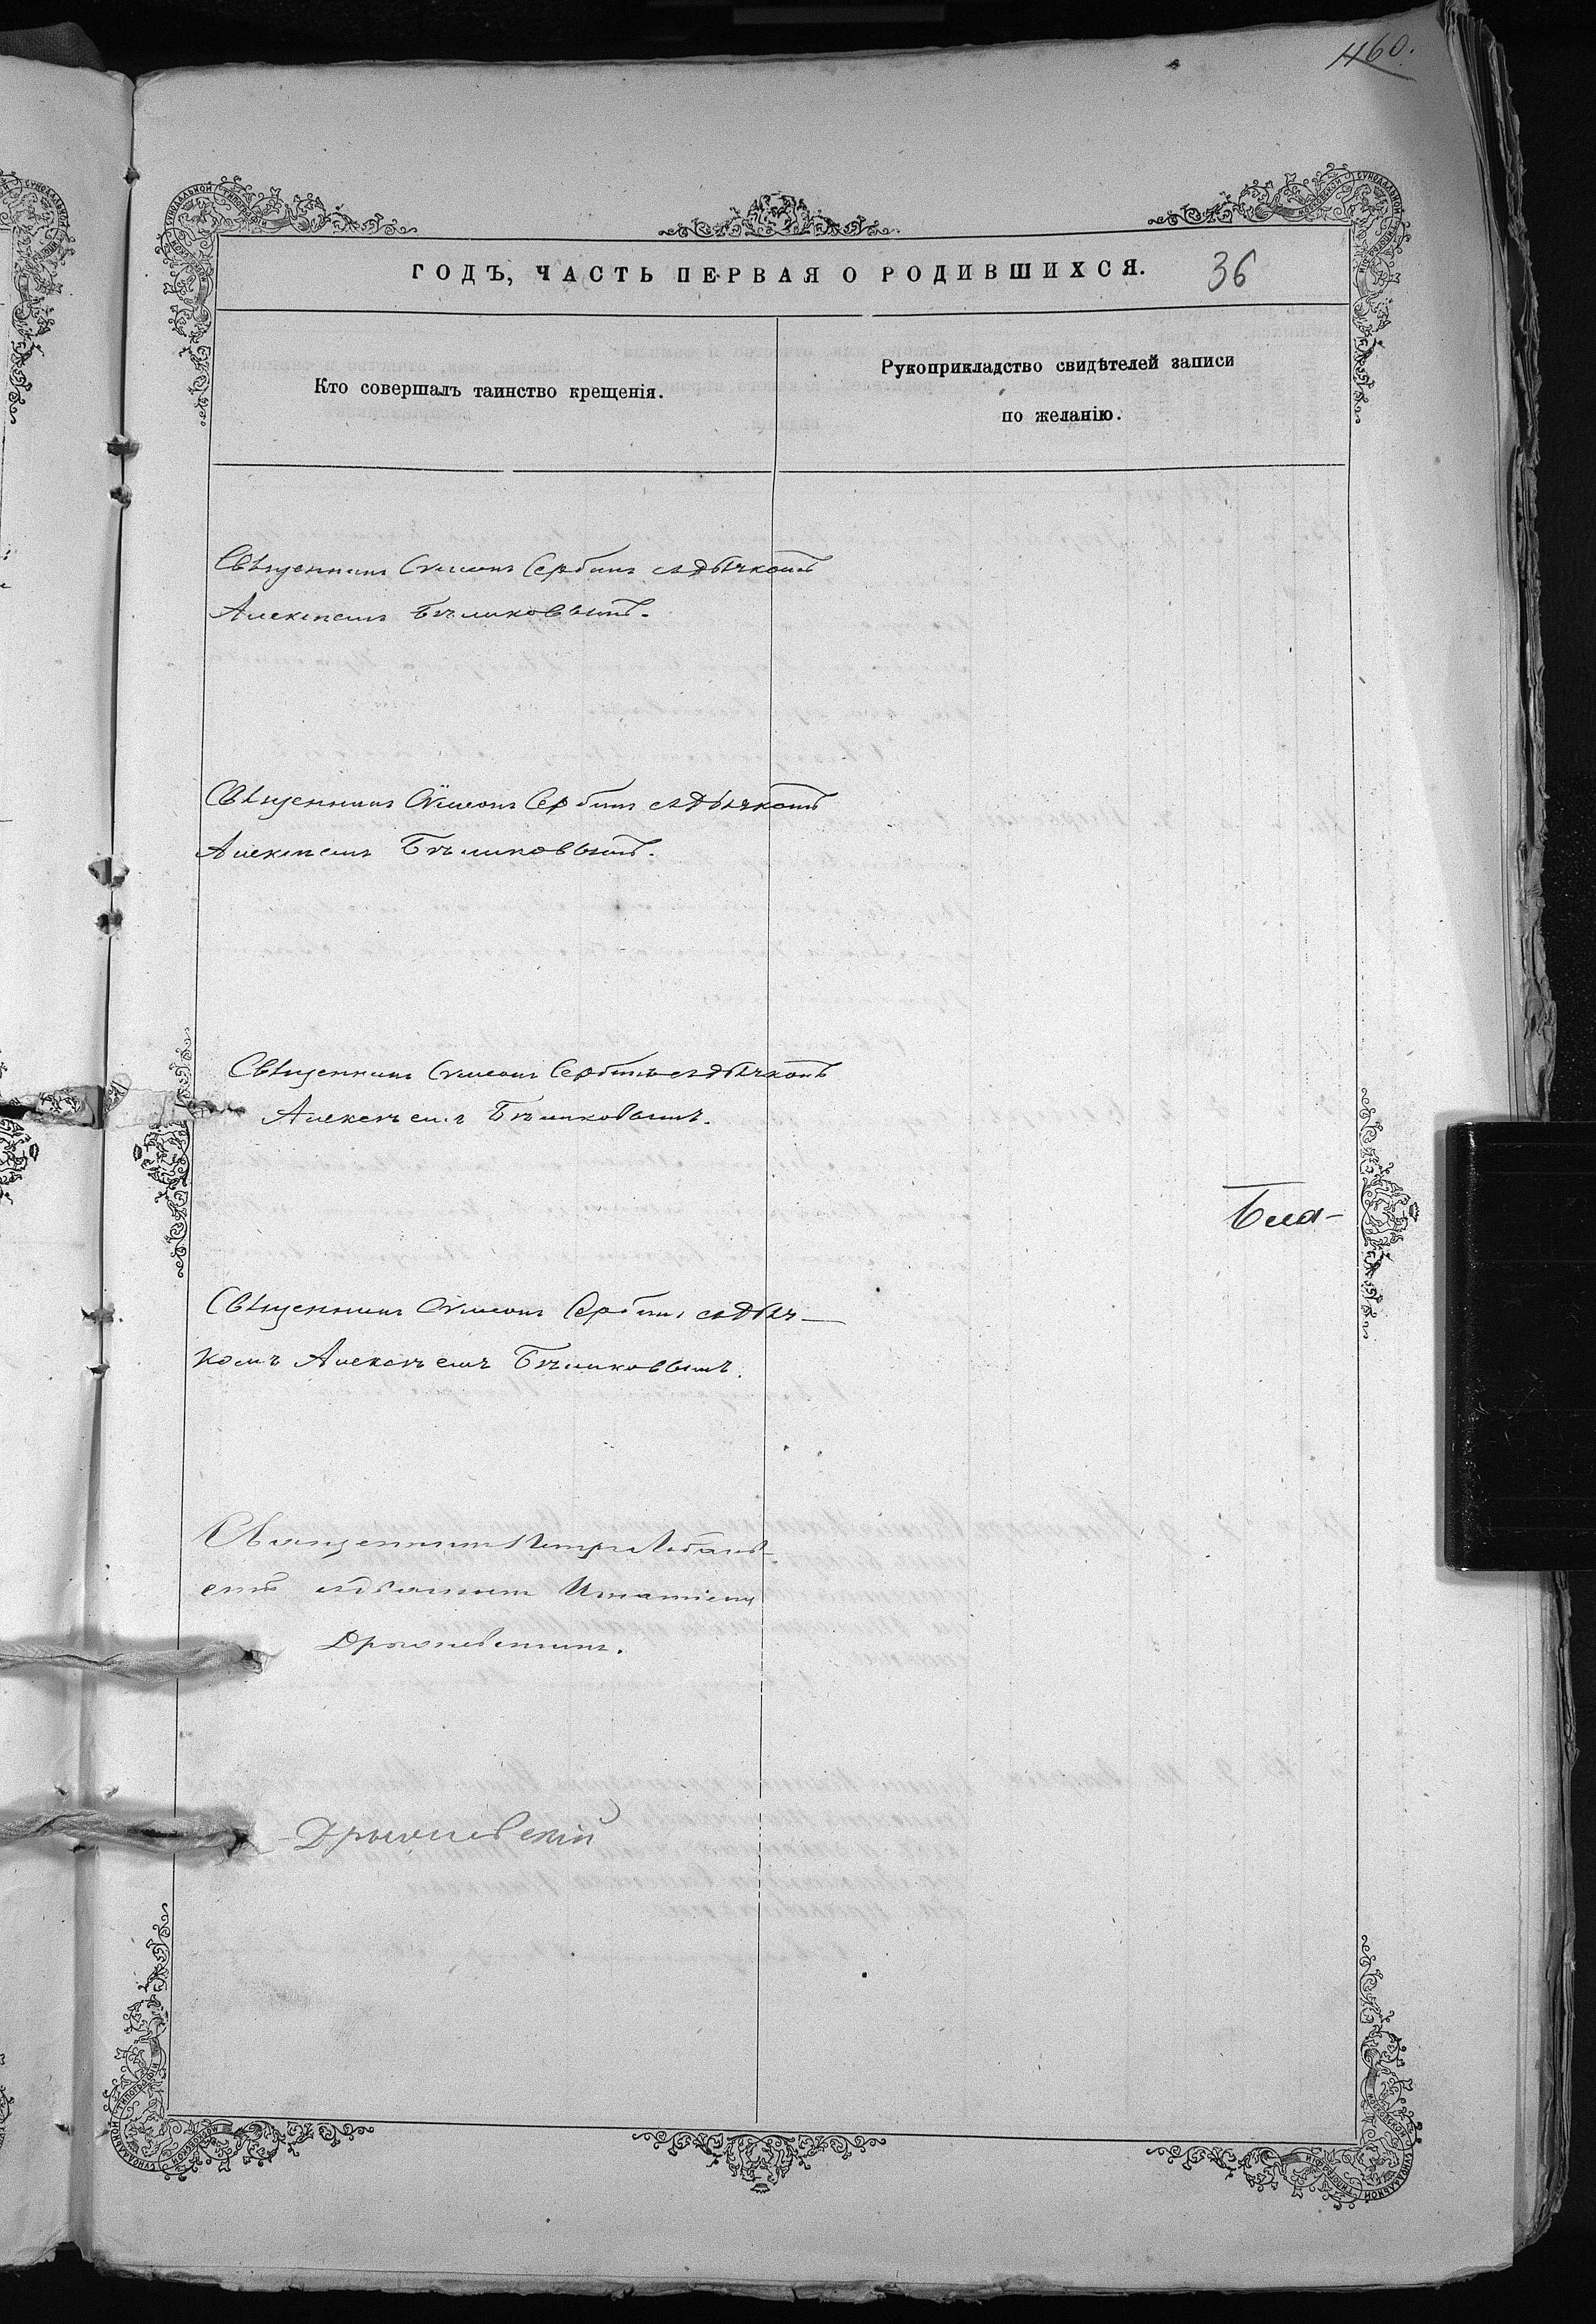 1160.
ГОДЪ, ЧАСТЬ ПЕРВАЯ О РОДИВШИХСЯ. 36
Кто совершалъ таинство крещенія.
Рукоприкладство свидѣтелей записи
по желанію.
Священникъ Сѵмеонъ Сербинъ съ дьячкомъ
Алексѣемъ Бѣликовымъ.
Священникъ Сѵмеонъ Сербинъ съ дьячкомъ
Алексѣемъ Бѣликовымъ.
Священникъ Сѵмеонъ Сербинъ съ дьячкомъ
Алексѣемъ Бѣликовымъ.
Священникъ Сѵмеонъ Сербинъ съ дьяч-
комъ Алексѣемъ Бѣликовымъ.
Священникъ Петръ
Игнатіемъ